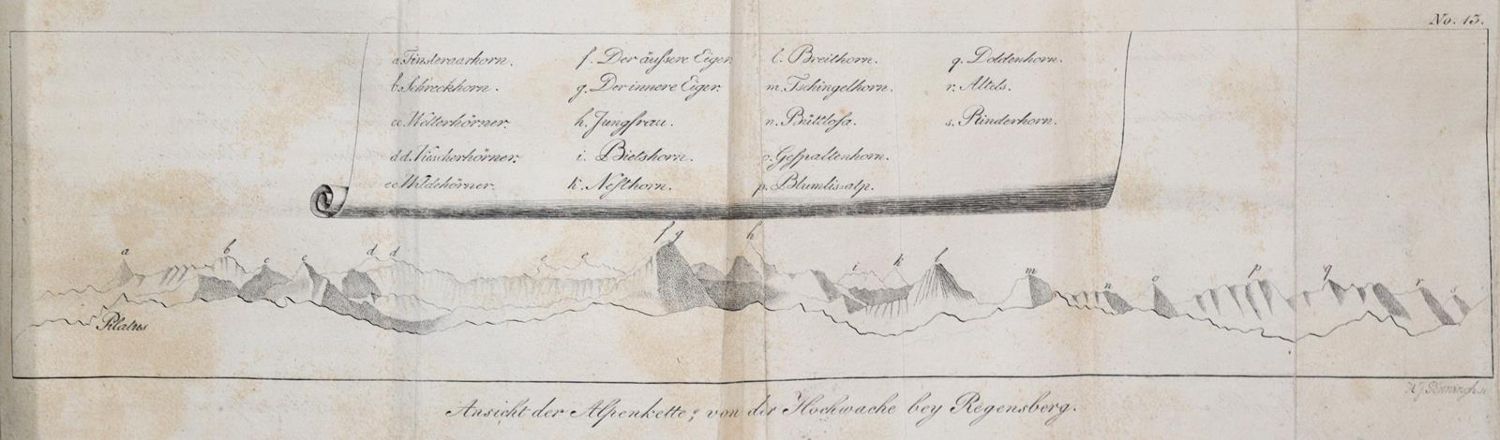 No. 13.
a. Finsteraarhorn.
b. Schreckhorn.
cc. Wetterhörner.
dd. Viescherhörner.
ee. Wildehörner.
f. Der äufsere Eiger
g. Der innere Eiger.
h. Jungfrau.
i. Bietshorn.
k. Nesthorn.
l. Breithorn.
m. Tschingelhorn.
n. Büttlosa.
o. Gespaltenhorn.
p. Blumlisalp.
q. Doldenhorn.
r. Altels.
s. Rinderhorn.
a b c c d d e e f g h i k l m n o p q r s
Pilatus
Ansicht der Alpenkette, von der Hochwache bey Regensberg.